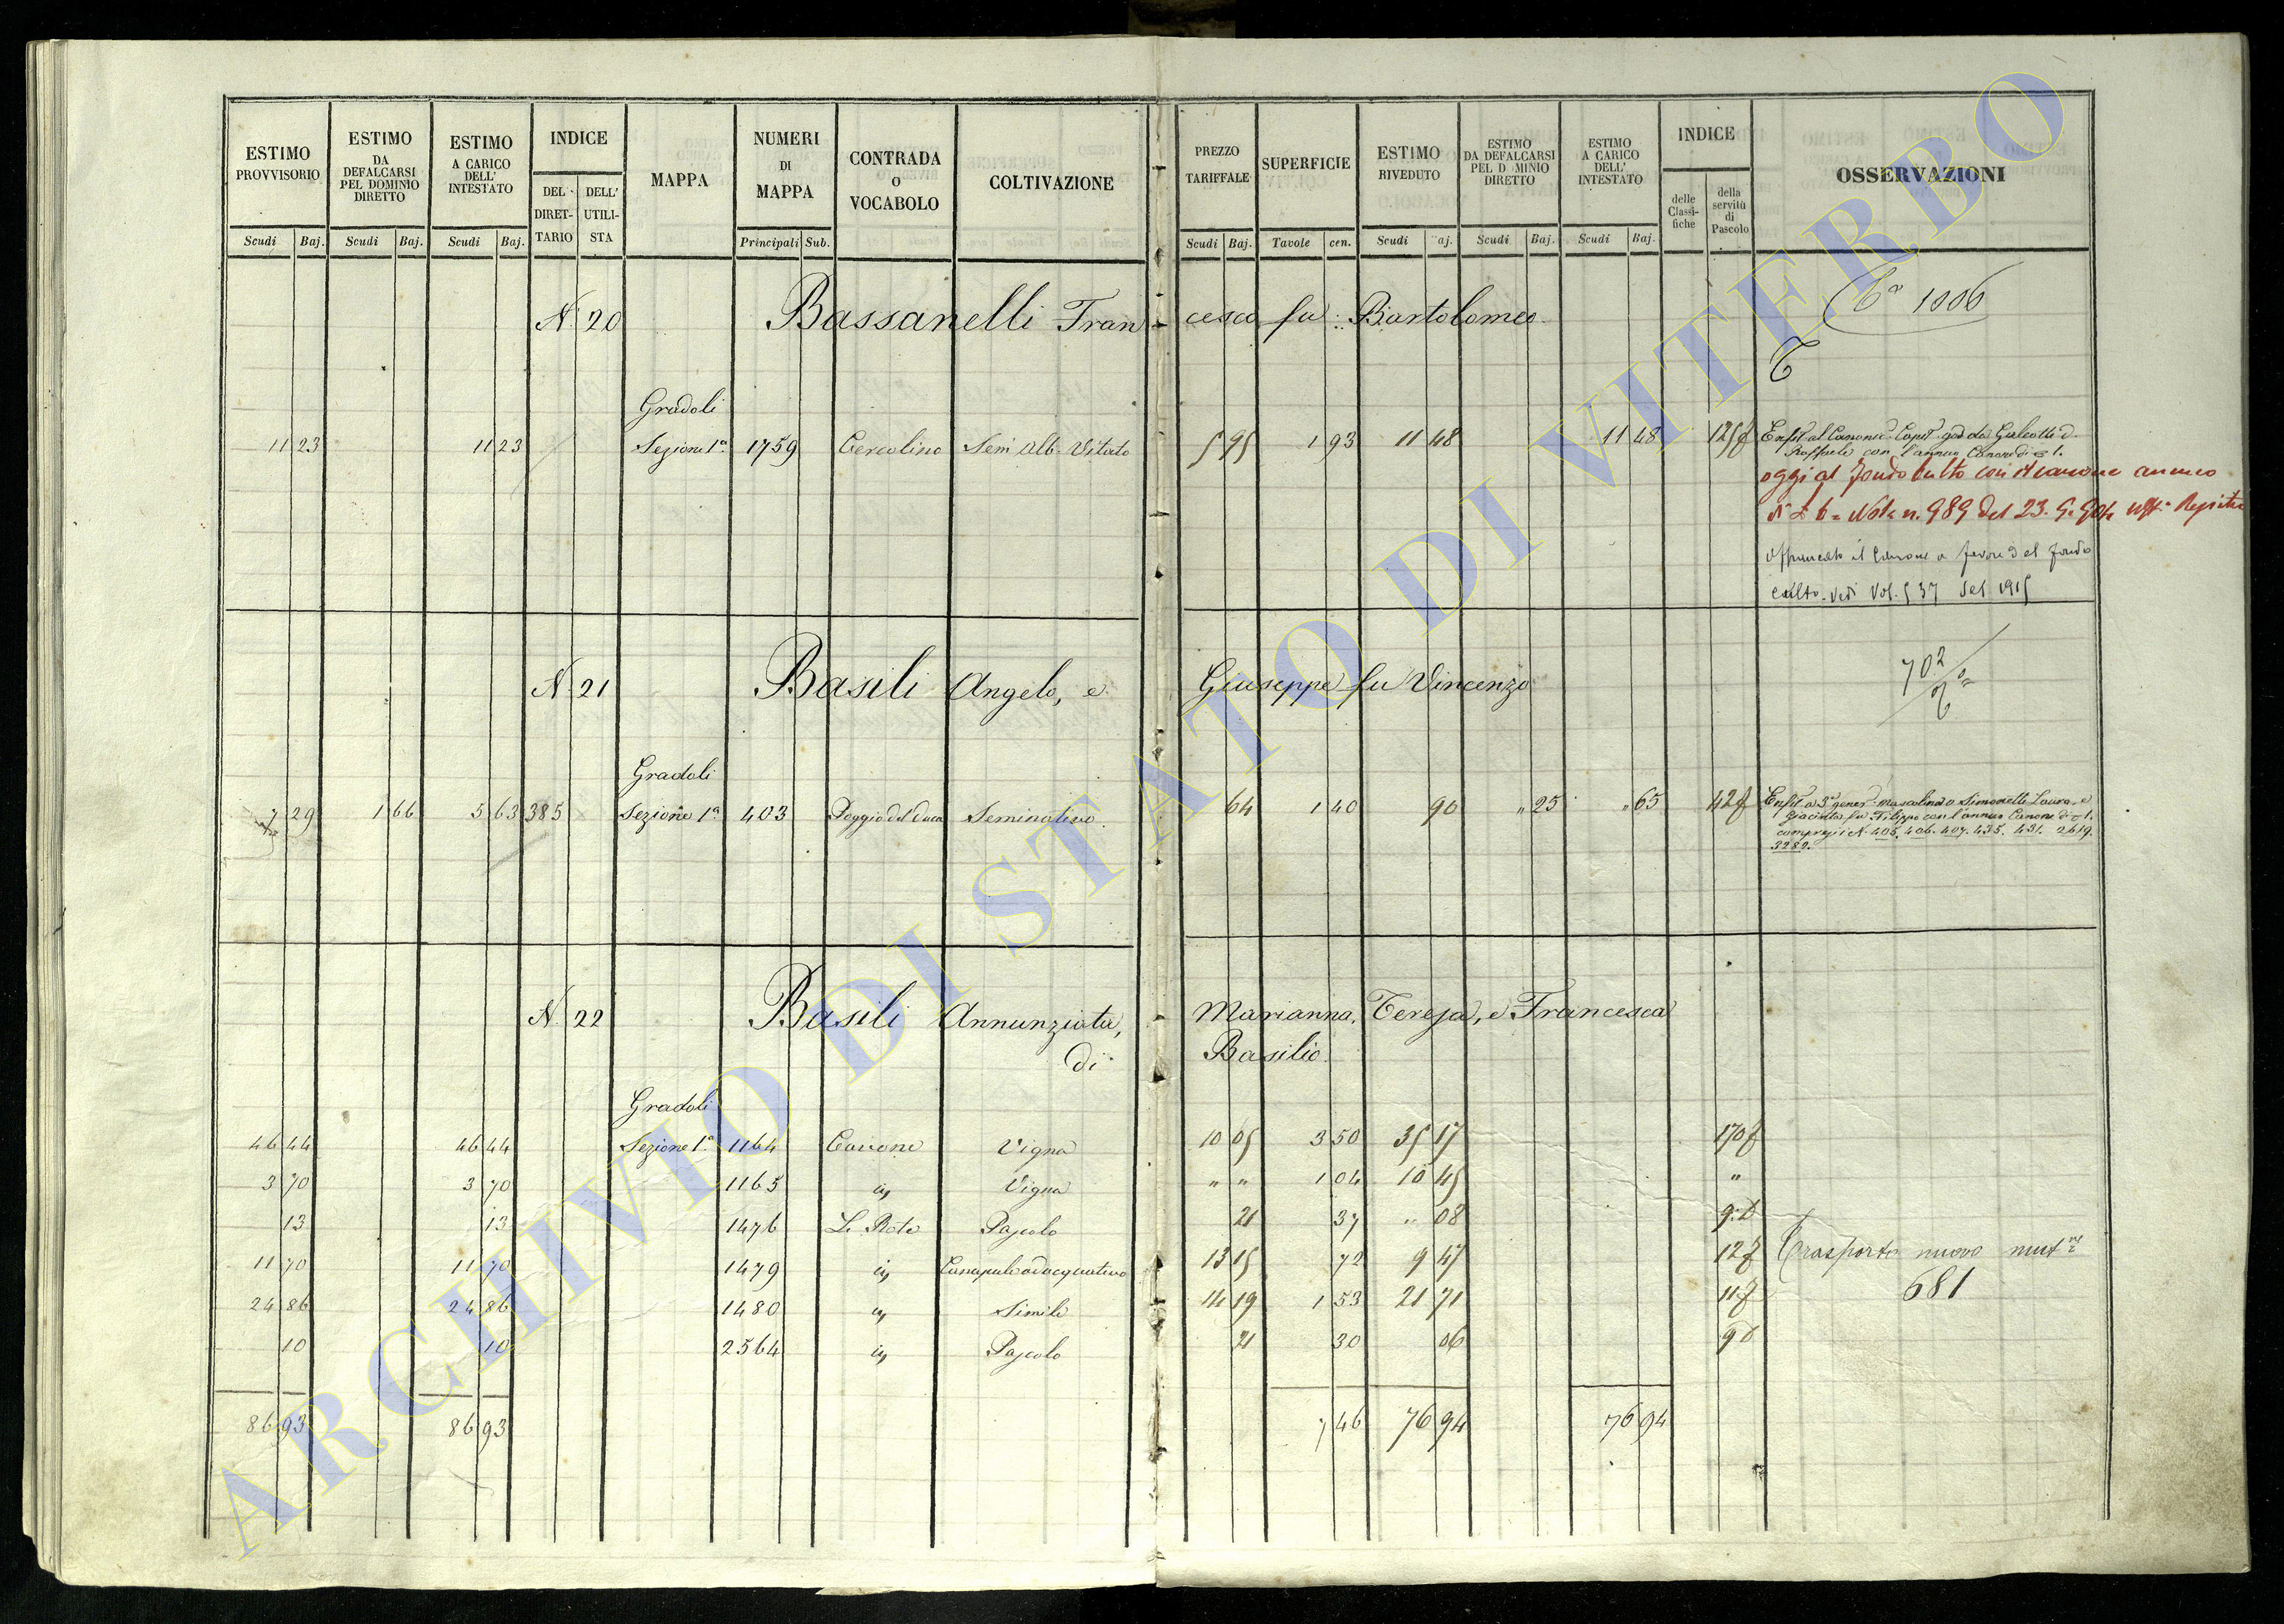 ESTIMO PROVVISORIO
ESTIMO DA DEFALCARSI PEL DOMINIO DIRETTO
ESTIMO A CARICO DELL' INTESTATO
INDICE
DEL DIRET-TARIO
DELL' UTILI-STA
MAPPA
NUMERI DI MAPPA
CONTRADA O VOCABOLO
COLTIVAZIONE
PREZZO TARIFFALE
SUPERFICIE
ESTIMO RIVEDUTO
ESTIMO DA DEFALCARSI PEL D MINIO DIRETTO
ESTIMO A CARICO DELL' INTESTATO
INDICE
delle Classi-fiche
della servitù di Pascolo
OSSERVAZIONI
Scudi Baj. Scudi Baj. Scudi Baj. Principali Sub. Scudi Baj. Tavole cen. Scudi aj. Scudi Baj. Scudi Baj.
N. 20 Bassanelli Francesco fu Bartolomeo
1006
Gradoli
11 23 11 23 Sezione 1a 1759 Cercolino Sem Alb. Vitato 5 95 1 93 11 48 11 48 125f
con l'annuo Canone di 1.
oggi al fondo culto con il canone annuo
Nota n. 989 del 23.
il Canone a favore del fondo
culto. Vedi Vol. 537 del 1915
N. 21 Basili Angelo, e Giuseppe fu Vincenzo
702
Gradoli
7 29 1 66 5 63 385 Sezione 1a 403 Poggio del Duca Seminativo 64 1 40 90 " 25 " 65 42f
a 3a gener. mascolina a Simonetti Laura, e
Giacinta fu Filippo con l'annuo Canone di 1.
compresi i N. 405. 406. 407. 435. 431. 2619.
3282.
N. 22 Basili Annunziata, Marianna, Teresa, e Francesca
di Basilio
Gradoli
46 44 46 44 Sezione 1a 1164 Vigna 10 05 3 50 35 17 170f
3 70 3 70 1165 Vigna " " 1 04 10 45 "
13 13 1476 Le Rote Pascolo 21 37 " 08
11 70 11 70 1479 Canapule adacquativo 13 15 72 9 47 12f
Trasporto nuovo
681
24 86 24 86 1480 Simile 14 19 1 53 21 71 11f
10 10 2564 Pascolo 21 30 06
86 93 86 93 7 46 76 94 76 94
ARCHIVIO DI STATO DI VITERBO